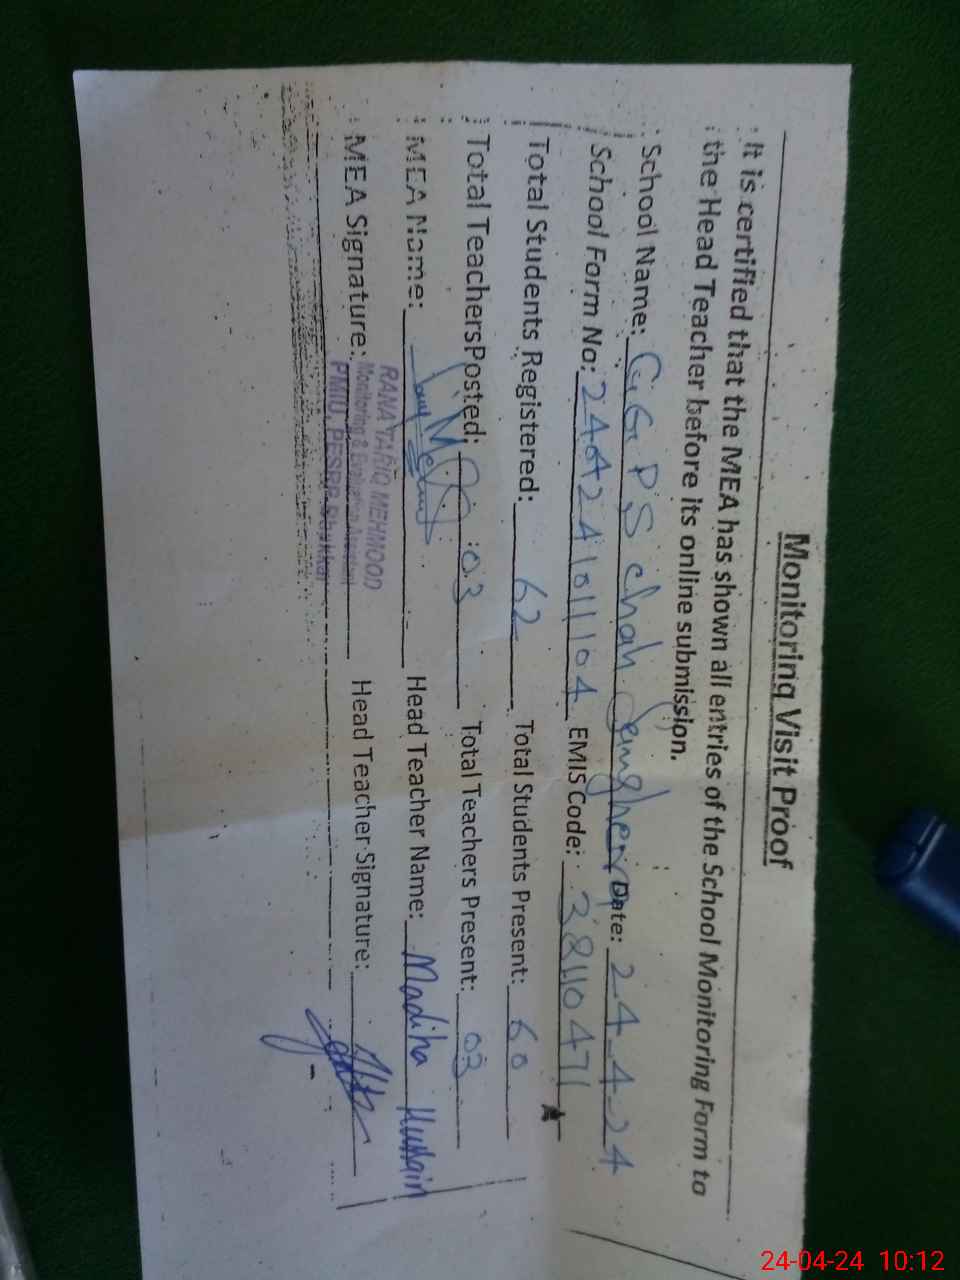 Monitoring Visit Proof
It is certified that the MEA has shown all entries of the School Monitoring Form to
the Head Teacher before its online submission.
School Name: GGPS chah Date: 24-4-24
School Form No: EMIS Code: 38110471
Total Students Registered: 62 Total Students Present: 60
Total TeachersPosted: 03 Total Teachers Present: 03
MEA Name: Head Teacher Name: Madiha Hussain
RANA TARIQ MEHMOOD
MEA Signature: Head Teacher Signature:
Monitoring & Evaluation Assistant
PMIU, PESRP Bhakkar
24-04-24 10:12